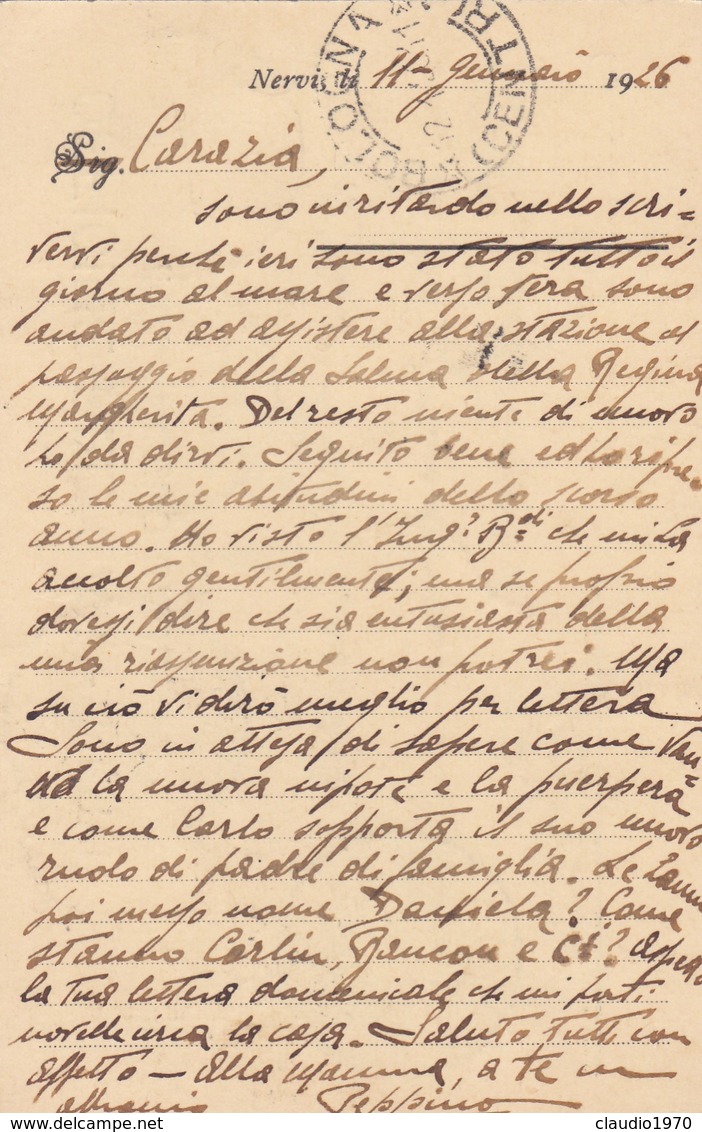 BOLOGNA (CENTR
Nervi, li 11 - Gennaio 1926
Sig. Carazia,
sono in ritardo nello scri=
vervi perchè ieri sono stato tutto il
giorno al mare e verso sera sono
andato ad assistere alla stazione al
passaggio della Salma della Regina
Margherita. Del resto niente di nuovo
ho da dirvi. Seguito bene ed ho ripre
so le mie abitudini dello scorso
anno. Ho visto l'Ing. che mi ha
accolto gentilmente; ma se proprio
dovessi dire che sia entusiasta della
mia riassunzione non potrei. Ma
su ciò vi dirò meglio per lettera
Sono in attesa di sapere come van=
no la nuova nipote e la puerpera
e come Carlo sopporta il suo nuovo
ruolo di padre di famiglia. Le hanno
poi messo nome Daniela? Come
stanno Carlin, e C.i? Aspetto
la tua lettera domenicale che mi porti
novelle circa la casa. Saluto tutti con
affetto — alla Mamma, a te un
abbraccio Peppino
claudio1970